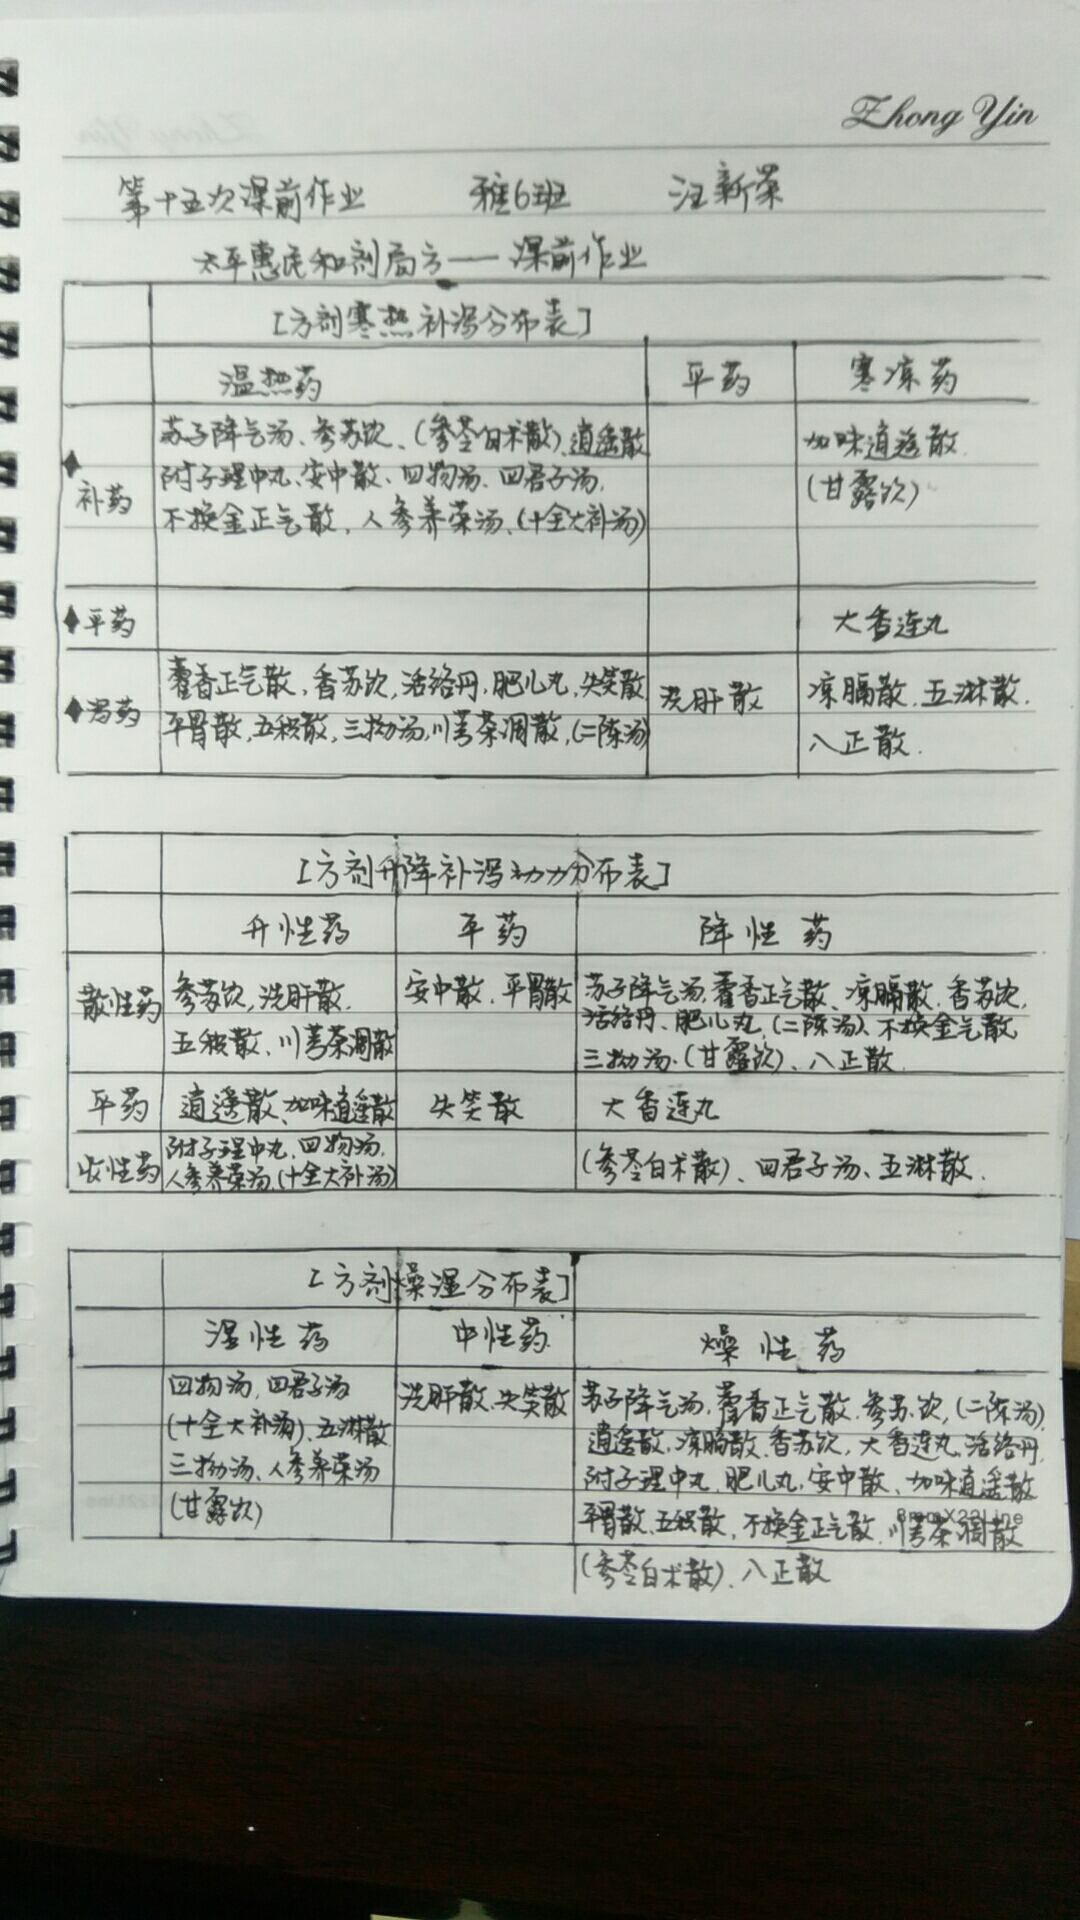 Zhong Yin
第十五次课前作业 雅6班 汪新荣
太平惠民和剂局方——课前作业
[方剂寒热补泻分布表]
温热药 平药 寒凉药
补药
苏子降气汤、参苏饮、(参苓白术散)、逍遥散
附子理中丸、安中散、四物汤、四君子汤,
不换金正气散,人参养荣汤、(十全大补汤)
加味逍遥散.
(甘露饮)
平药 大香连丸
泻药
藿香正气散,香苏饮,活络丹,肥儿丸,失笑散
平胃散,五积散,三拗汤,川芎茶调散,(二陈汤)
洗肝散
凉膈散、五淋散.
八正散.
[方剂升降补泻动力分布表]
升性药 平药 降性药
散性药
参苏饮,洗肝散.
五积散、川芎茶调散
安中散、平胃散
苏子降气汤,藿香正气散、凉膈散,香苏饮,
活络丹、肥儿丸,(二陈汤)、不换金气散
三拗汤.(甘露饮)、八正散
平药 逍遥散、加味逍遥散 失笑散 大香连丸
收性药
附子理中丸,四物汤,
人参养荣汤,(十全大补汤)
(参苓白术散)、四君子汤、五淋散.
[方剂燥湿分布表]
湿性药 中性药 燥性药
四物汤,四君子汤
(十全大补汤)、五淋散
三拗汤、人参养荣汤
(甘露饮)
洗肝散、失笑散
苏子降气汤,藿香正气散,参苏饮,(二陈汤)
逍遥散,凉膈散,香苏饮,大香连丸,活络丹,
附子理中丸,肥儿丸,安中散、加味逍遥散
平胃散,五积散,不换金正气散,川芎茶调散
8mmX22Line
(参苓白术散)、八正散